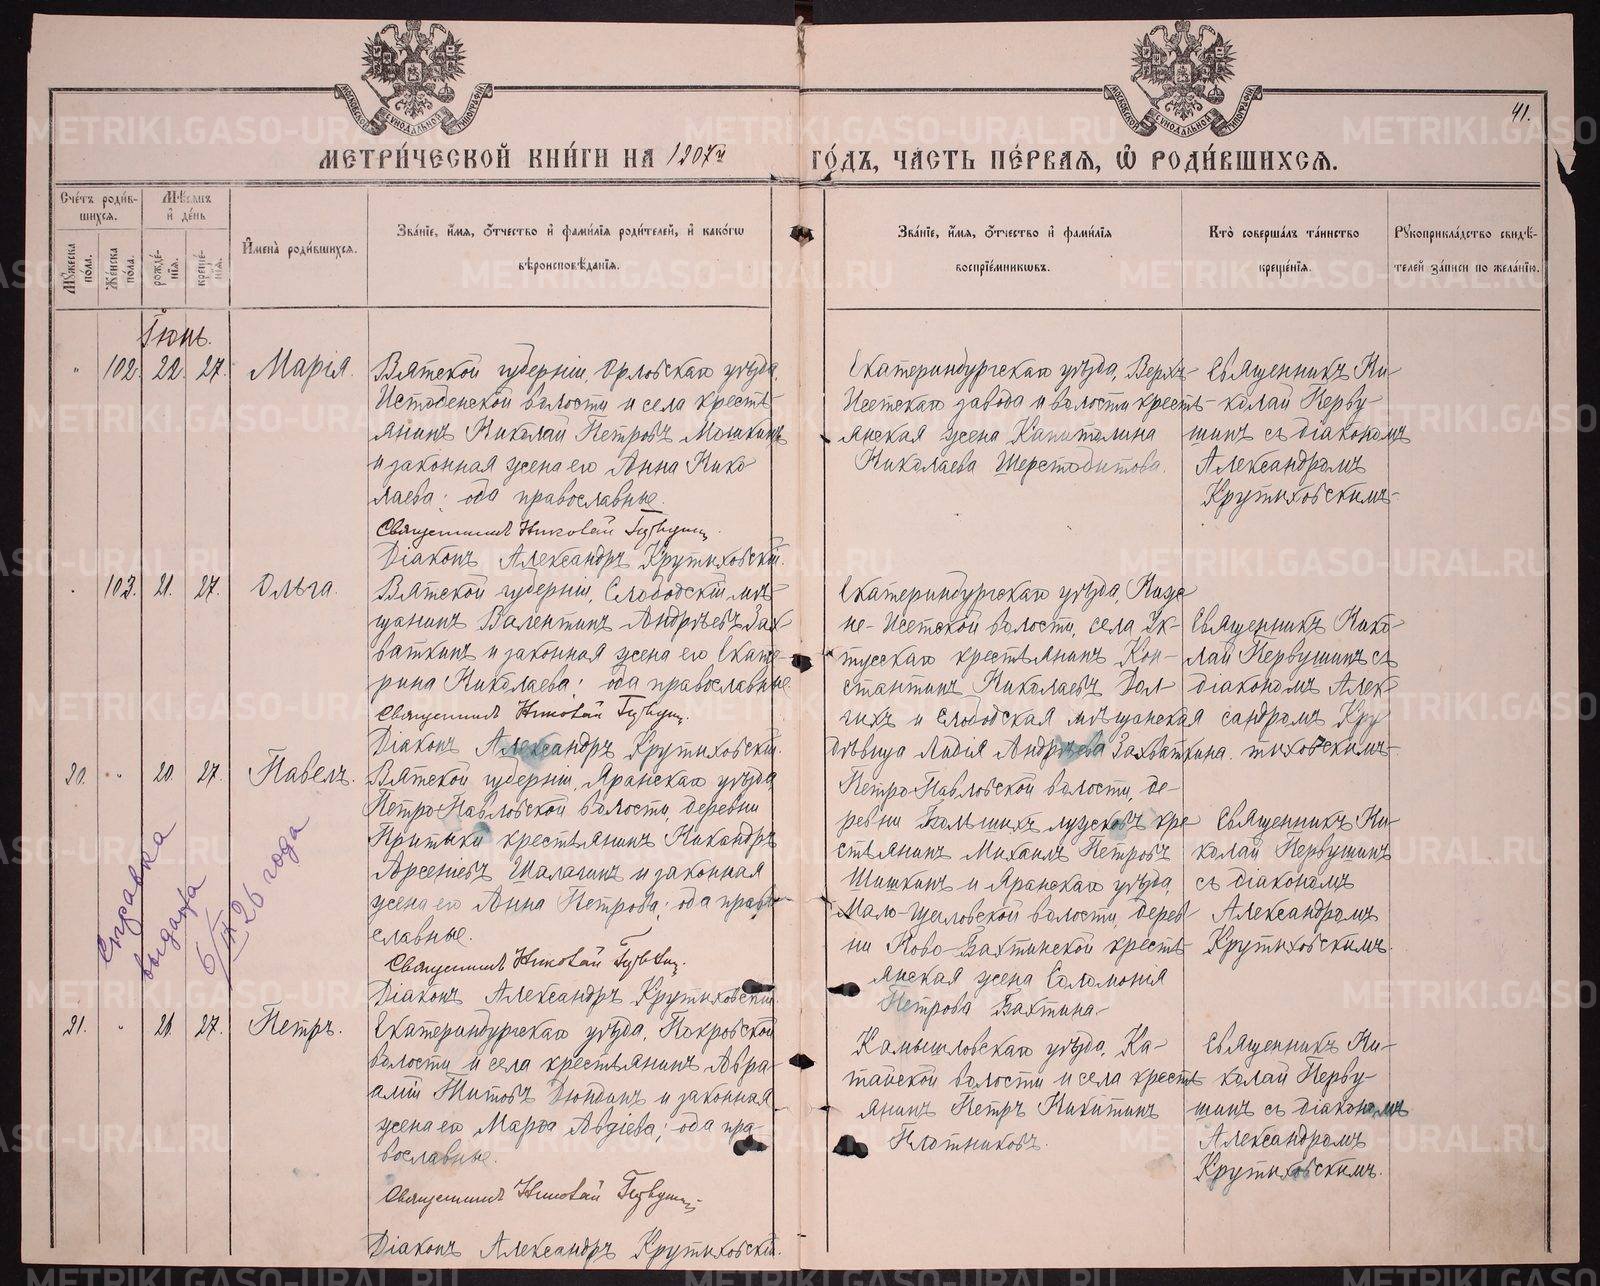 МОСКОВСКОЙ СѴНОДАЛЬНОЙ ТИПОГРАФІИ
МОСКОВСКОЙ СѴНОДАЛЬНОЙ ТИПОГРАФІИ
41.
МЕТРИ́ЧЕСКОЙ КНИ́ГИ НА 1907й ГО́ДЪ, ЧА́СТЬ ПЕ́РВАЯ, Ѽ РОДИ́ВШИХСЯ.
Сче́тъ роди́в-
шихся.
Мꙋжеска пола.
Же́нска пола.
Мѣ́сяцъ
и҆ де́нь
рожде́-
нїя.
креще́-
нїя.
И҆мена̀ роди́вшихся.
Зва́нїе, и҆́мя, ѻ҆́тчество и҆ фами́лїя роди́телей, и҆ како́гѡ
вѣроисповѣ́данїя.
Зва́нїе, и҆́мя, ѻ҆́тчество и҆ фами́лїя
воспрїе́мникѡвъ.
Кто̀ соверша́лъ та́инство
креще́нїя.
Рꙋкоприкла́дство свидѣ́-
телей за́писи по жела́нїю.
Іюнь.
" 102. 22. 27. Марія.
Вятской губерніи, Орловскаго уѣзда,
Истобенской волости и села кресть-
янинъ Николай Петровъ Мошкинъ
и законная жена его Анна Нико-
лаева; оба православные.
Священникъ Николай Первушин.
Діаконъ Александръ Крутиховскій.
Екатеринбургскаго уѣзда, Верхъ-
Исетскаго завода и волости кресть-
янская жена Капитолина
Николаева Шерстобитова.
Священникъ Ни-
колай Перву-
шинъ съ діакономъ
Александромъ
Крутиховскимъ.
103. 21. 27. Ольга.
Вятской губерніи, Слободскій мѣ-
щанинъ Валентинъ Андреевъ Зах-
ваткинъ и законная жена его Екате-
рина Николаева; оба православные.
Священникъ Николай Первушин.
Діаконъ Александръ Крутиховскій.
Екатеринбургскаго уѣзда, Ниж-
не-Исетской волости, села Ук-
тусскаго крестьянинъ Кон-
стантинъ Николаевъ Дол-
гихъ и слободская мѣщанская
дѣвица Лидія Андреева Захваткина.
Священникъ Нико-
лай Первушинъ съ
діакономъ Алек-
сандромъ Кру-
тиховскимъ.
20. " 20. 27. Павелъ.
Вятской губерніи, Яранскаго уѣзда,
Петро-Павловской волости, деревни
Притыки крестьянинъ Никандръ
Арсеніевъ Шалагинъ и законная
жена его Анна Петрова; оба право-
славные.
Священникъ Николай Первушин.
Діаконъ Александръ Крутиховскій
Петро-Павловской волости, де-
ревни Большихъ кре-
стьянинъ Михаилъ Петровъ
Шишкинъ и Яранскаго уѣзда,
волости, дерев-
ни Ново-Бахтинской кресть-
янская жена Соломонія
Петрова Бахтина.
Священникъ Ни-
колай Первушинъ
съ діакономъ
Александромъ
Крутиховскимъ.
Справка
выдана
6/II 26 года
21. " 21. 27. Петръ.
Екатеринбургскаго уѣзда, Покровской
волости и села крестьянинъ Авра-
амій Титовъ и законная
жена его Марѳа Авдіева; оба пра-
вославные.
Священникъ Николай Первушин
Діаконъ Александръ Крутиховскій.
Камышловскаго уѣзда, Ка-
тайской волости и села кресть-
янинъ Петръ Никитинъ
Плотниковъ.
Священникъ Ни-
колай Перву-
шинъ съ діакономъ
Александромъ
Крутиховскимъ.
METRIKI.GASO-URAL.RU